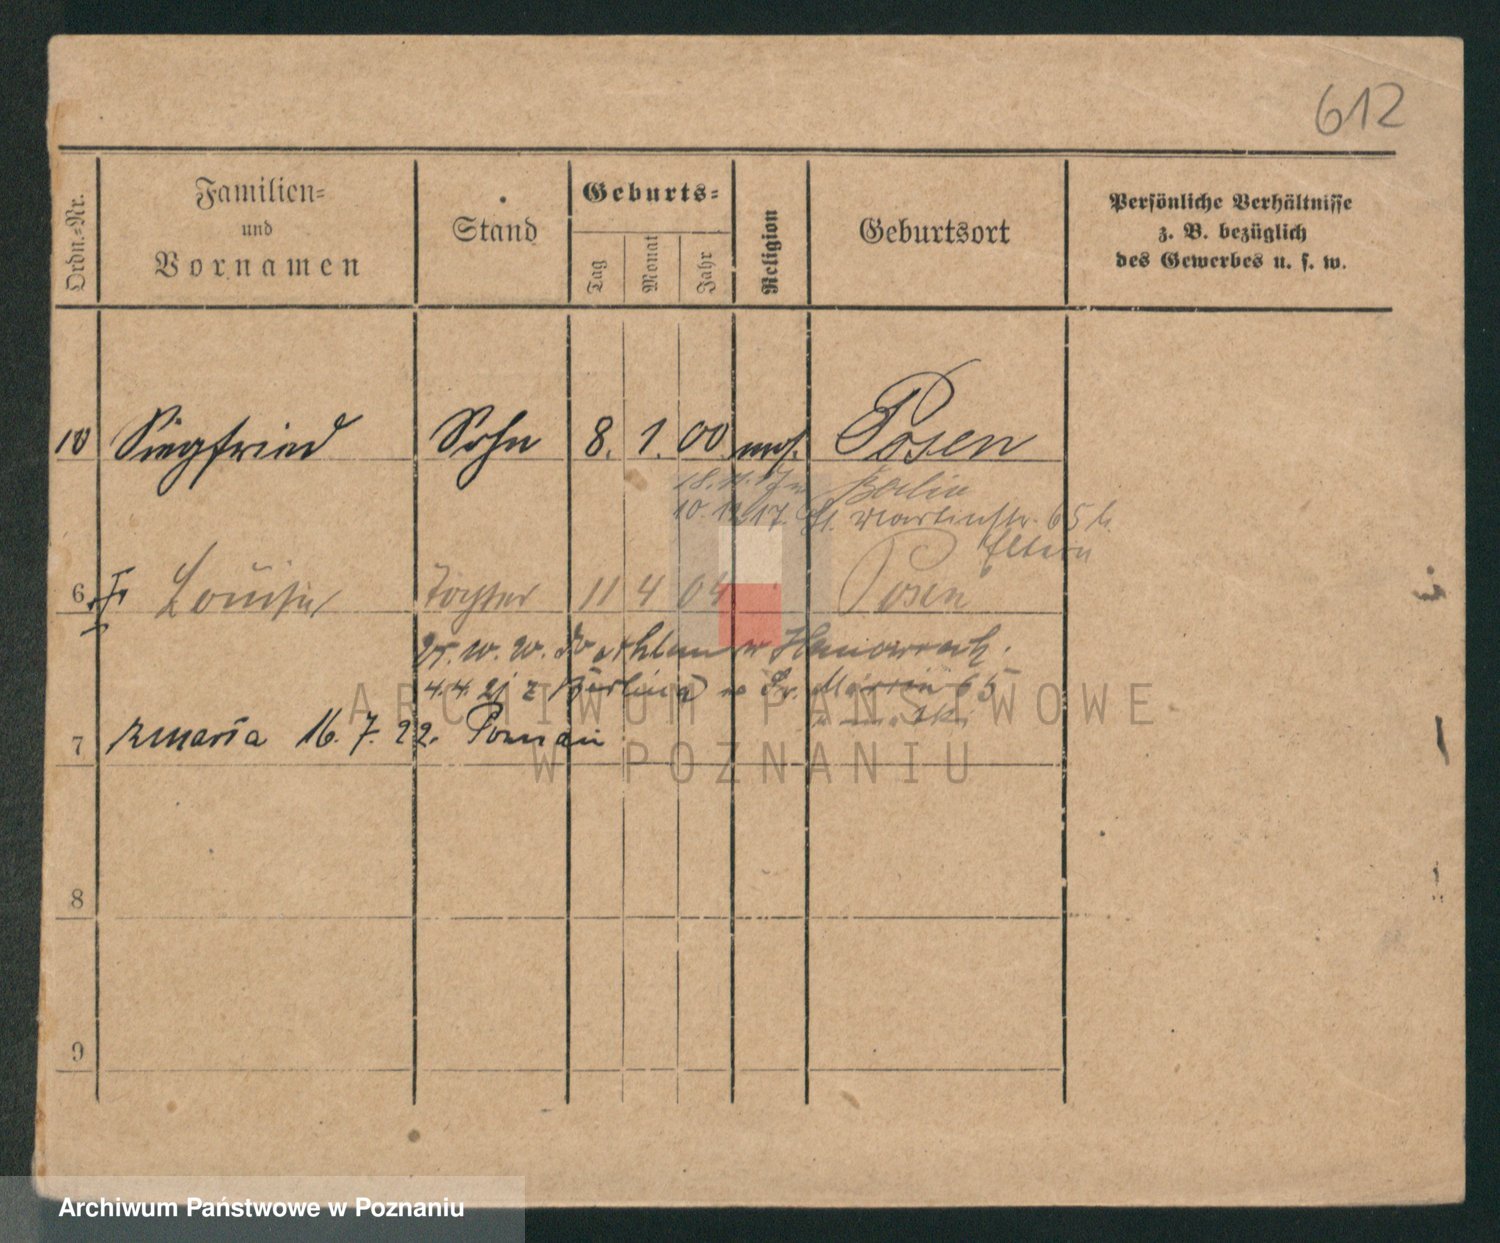 612
Ordn.-Nr.
Familien-
und
Vornamen
Stand
Geburts-
Tag
Monat
Jahr
Religion
Geburtsort
Persönliche Verhältnisse
z. B. bezüglich
des Gewerbes u. s. w.
10 Siegfried Sohn 8. 1. 00 mos. Posen
Berlin
10. 12. 17. St. Martinstr. 65 b.
Eltern
6 Louise Tochter 11 4 04 Posen
4.4. 21 z Berlina Św. Marcin 65
7 zmarła 16. 7. 22. Poznań
8
9
ARCHIWUM PAŃSTWOWE
W POZNANIU
Archiwum Państwowe w Poznaniu